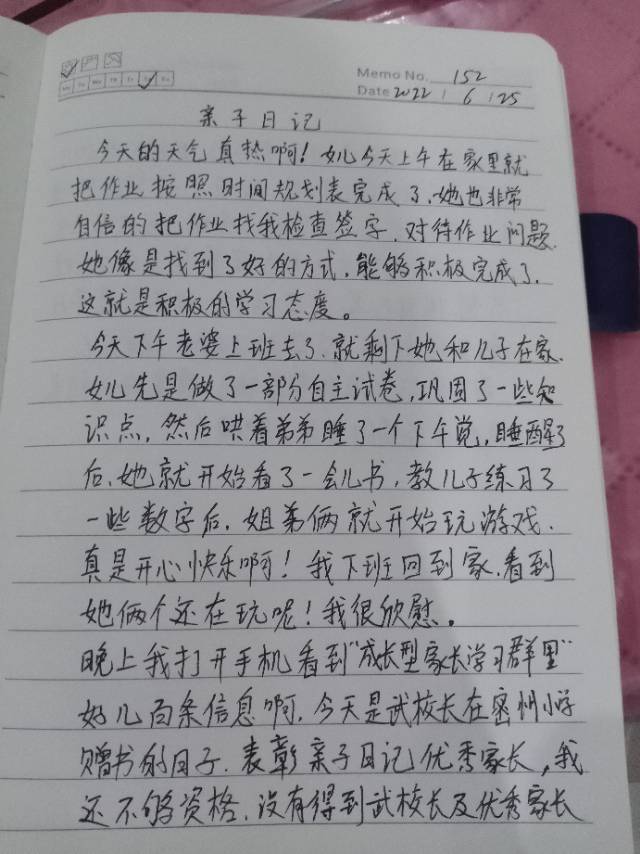 Memo No. 152
Mo Tu We Th Fr Sa Su
Date 2022 / 6 / 25
亲子日记
今天的天气真热啊！女儿今天上午在家里就
把作业按照时间规划表完成了，她也非常
自信的把作业找我检查签字，对待作业问题，
她像是找到了好的方式，能够积极完成了，
这就是积极的学习态度。
今天下午老婆上班去了，就剩下她和儿子在家，
女儿先是做了一部分自主试卷，巩固了一些知
识点，然后哄着弟弟睡了一个下午觉，睡醒了
后，她就开始看了一会儿书，教儿子练习了
一些数字后，姐弟俩就开始玩游戏，
真是开心快乐啊！我下班回到家，看到
她俩个还在玩呢！我很欣慰。
晚上我打开手机看到"成长型家长学习群里"
好几百条信息啊，今天是武校长在密州小学
赠书的日子，表彰亲子日记优秀家长，我
还不够资格，没有得到武校长及优秀家长